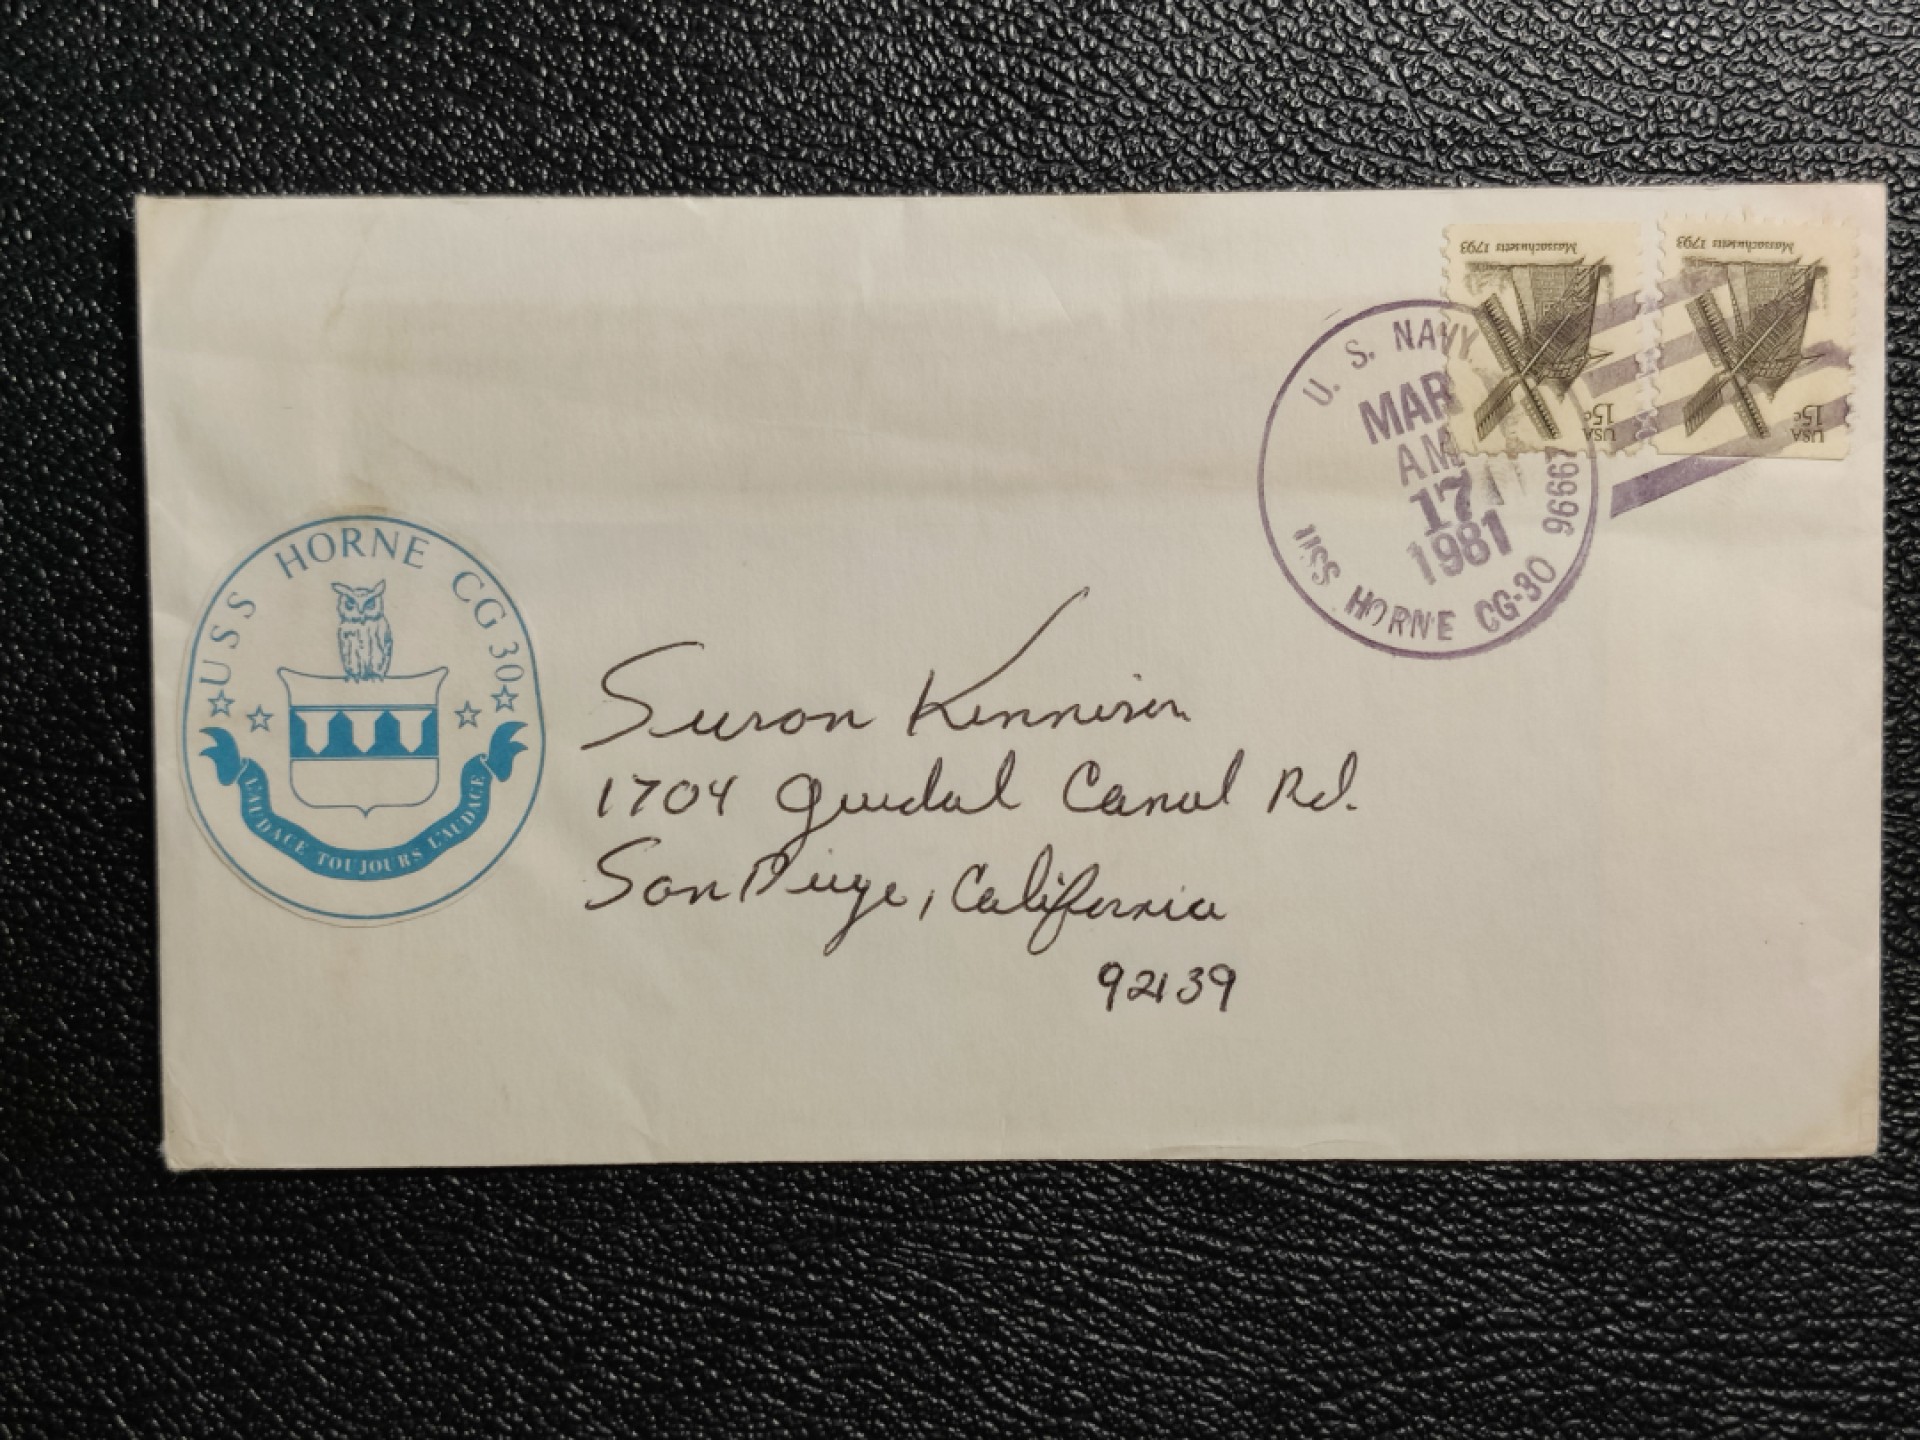 Massachusetts 1793
Massachusetts 1793
USA
15c
USA
15c
U. S. NAVY
MAR
AM
17
1981
USS HORNE CG-30 96667
USS HORNE CG 30
L'AUDACE TOUJOURS L'AUDACE
Suron Kennison
1704 Guidal Canal Rd.
San Diego, California
92139